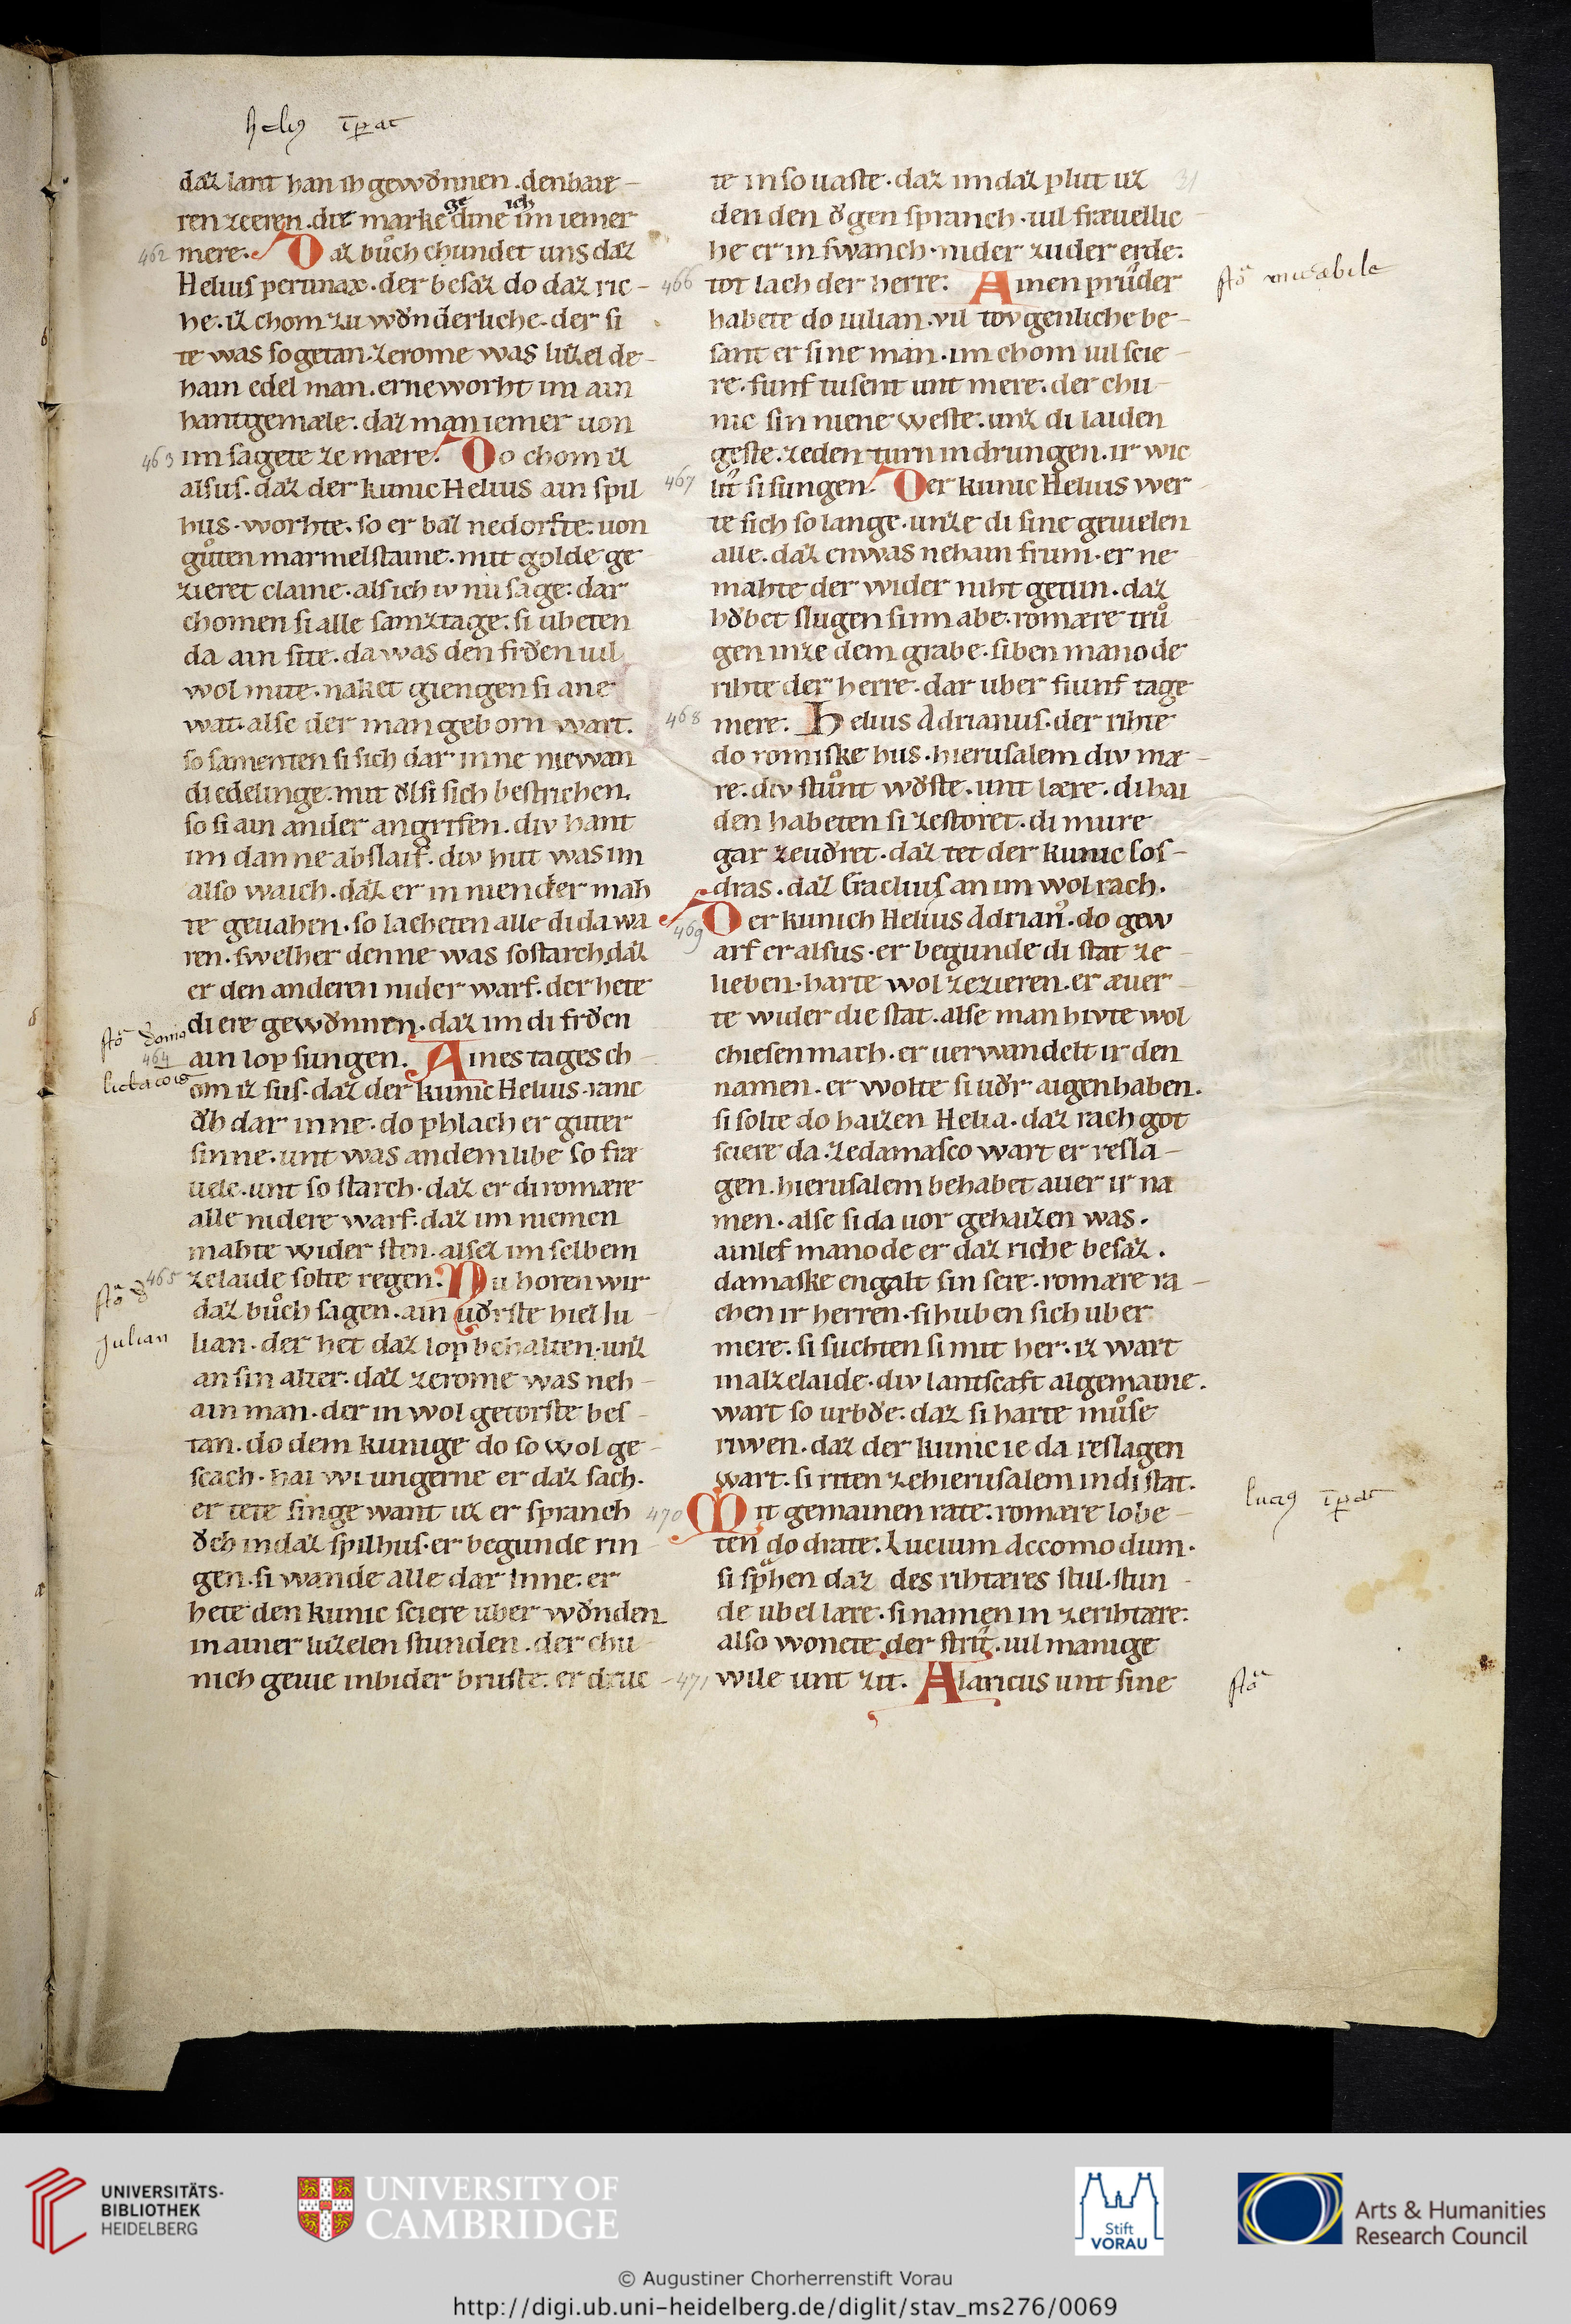 heliꝰ īꝑat
daz lant han ih gewͦnnen. den hare-
ren zceren. die marke ge dine ich im iemer
462 mere. Daz bůch chundet uns daz
Helius pertinax. der besaz do daz ric-
he. iz chom zu wͦnderliche. der si
te was so getan. zerome was luzel de-
hain edel man. erne worht im ain
hantgemæle. daz man iemer uon
463 im sagete ze mære. Do chom iz
alsus. daz der kunic Helius ain spil
hus. worhte. so er baz nedorfte. uon
gůten marmelstaine. mit golde ge
zieret claine. als ich iv nu sage. dar
chomen si alle samztage. si ubeten
da ain site. da was den frͦen uil
wol mite. naket giengen si ane
wat. alse der man geborn wart.
so samenten si sich dar inne niewan
di edelinge. mit ͦlsi sich bestrichen.
so si ain ander angrifen. div hant
im danne abslaif. div hut was im
also waich. daz er in niender mah
te geuahen. so lacheten alle di da wa
ren. swelher denne was so starch daz
er den anderen nider warf. der hete
di ere gewͦnnen. daz im di frͦen
464 ain lop sungen. Aines tages ch
om iz sus. daz der kunic Helius ranc
ͦh dar inne. do phlach er guter
sinne. unt was an dem libe so fræ
uele. unt so starch. daz er di romære
alle nidere warf. daz im niemen
mahte wider sten. als ez im selbem
465 zelaide solte regen. Nu horen wir
daz bůch sagen. ain uͦrste hiez Iu
lian. der het daz lop behalten. unz
an sin alter. daz zerome was neh-
ain man. der in wol getorste bes-
tan. do dem kunige do so wol ge-
scach. hai wi ungerne er daz sach.
er tete sin gewant uz er spranch
ͦch in daz spilhus. er begunde rin
gen. si wande alle dar inne. er
hete den kunic sciere uber wͦnden
in ainer luzelen stunden. der chu
nich geuie in bi der bruste. er druc-
31
te in so uaste. daz im daz plut uz
den den ͦgen spranch. uil fræuellic
he er in swanch. nider zu der erde.
466 tot lach der herre. Ainen průder
habete do iulian. vil tovgenliche be-
sant er sine man. im chom uil scie-
re. funf tusent unt mere. der chu-
nic sin niene weste. unz di laiden
geste. zeden turn in drungen. ir wic
467 lit si sungen. Der kunic Helius wer-
te sich so lange. unze di sine geuielen
alle. daz enwas nehain frum. er ne
mahte der wider niht getun. daz
hͦbet slugen si im abe. romære trů
gen in ze dem grabe. siben manode
rihte der herre. dar uber fiunf tage
468 mere. Helius Adrianus. der rihte
do romiske hus. hierusalem div mæ-
re. div stůnt wͦste. unt lære. di hai
den habeten si zestoret. di mure
gar zeuͦret. daz tet der kunic Cos-
dras. daz Eraclius an im wol rach.
469 Der kunich Helius Adrianꝰ. do gew
arf er alsus. er begunde di stat ze
lieben. harte wol ze zieren. er æuer-
te wider die stat. alse man hivte wol
chiesen mach. er uerwandelt ir den
namen. er wolte si uͦr aigen haben.
si solte do haizen Helia. daz rach got
sciere da. zedamasco wart er resla-
gen. hierusalem behabet auer ir na
men. alse si da uor gehaizen was.
ainlef manode er daz riche besaz.
damaske engalt sin sere. romære ra-
chen ir herren. si huben sich uber
mere. si suchten si mit her. iz wart
in alzelaide. div lantscaft algemaine.
wart so urbͦe. daz si harte můse
riwen. daz der kunic ie da reslagen
wart. si riten zehierusalem in di stat.
470 Mit gemainen rate. romære lobe-
ten do drate. Lucium Accomodum.
si sphen daz des rihtæres stul. stun-
de ubel lære. si namen in ze rihtære.
also wonete der strit. uil manige
471 wile unt zit. Alaricus unt sine
luctacoīs
Julian
mirabile
luciꝰ īꝑat
UNIVERSITÄTS-
BIBLIOTHEK
HEIDELBERG
UNIVERSITY OF
CAMBRIDGE
Stift
VORAU
Arts & Humanities
Research Council
© Augustiner Chorherrenstift Vorau
http://digi.ub.uni-heidelberg.de/diglit/stav_ms276/0069